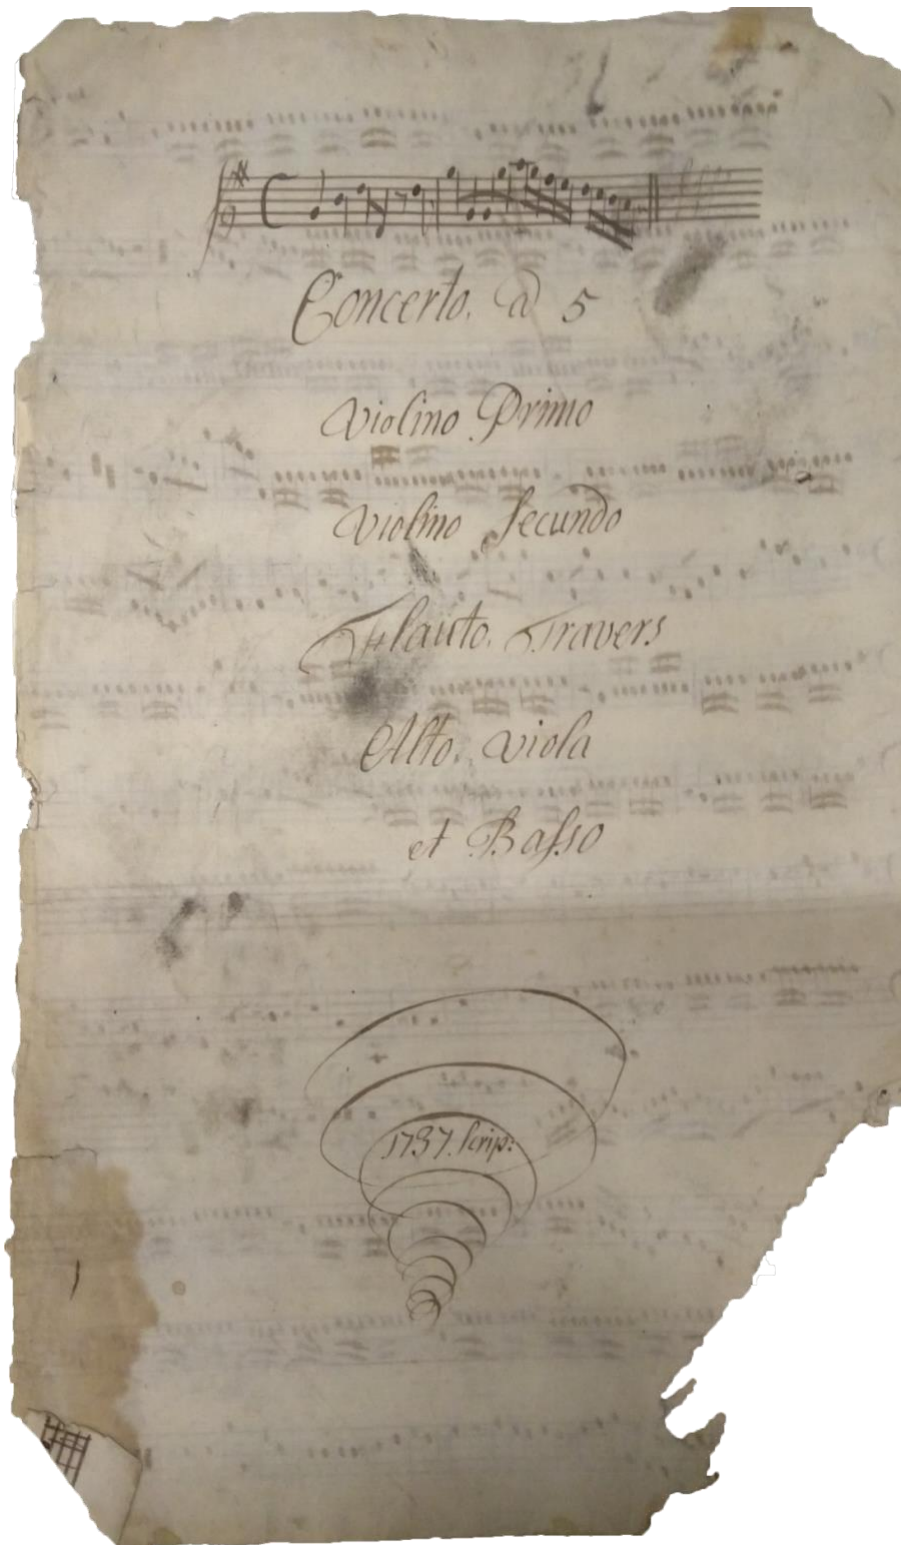 Concerto. a 5
Violino Primo
Violino Secundo
Flauto. Travers
Alto. Viola
et Basso
1737. Scrip: